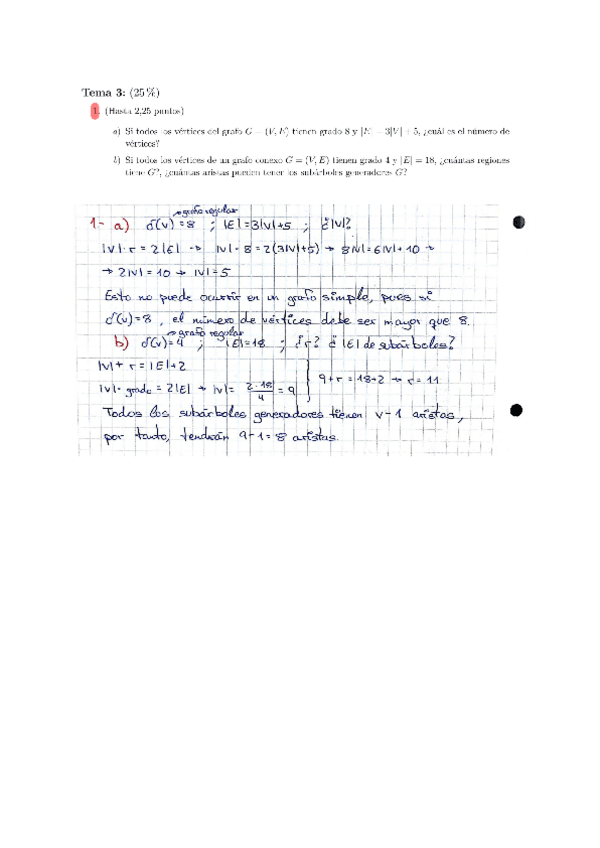 Tema 3: (25 %)
1. (Hasta 2,25 puntos)
a) Si todos los vértices del grafo G = (V, E) tienen grado 8 y |E| = 3|V| + 5, ¿cuál es el número de
vértices?
b) Si todos los vértices de un grafo conexo G = (V, E) tienen grado 4 y |E| = 18, ¿cuántas regiones
tiene G?, ¿cuántas aristas pueden tener los subárboles generadores G?
→ grafo regular
1- a) δ(v)=8 ; |E|=3|V|+5 ; ¿|V|?
|V|· r = 2|E| → |V|· 8 = 2(3|V|+5) → 8|V|=6|V|+10 →
→ 2|V|=10 → |V|=5
Esto no puede ocurrir en un grafo simple, pues si
δ(v)=8, el número de vértices debe ser mayor que 8.
→ grafo regular
b) δ(v)=4 ; |E|=18 ; ¿r? ¿|E| de subárboles?
|V|+ r = |E|+2
|V|· grado = 2|E| → |V|= 2·18/4 = 9 } 9+r = 18+2 → r = 11
Todos los subárboles generadores tienen v-1 aristas,
por tanto, tendrán 9-1=8 aristas.